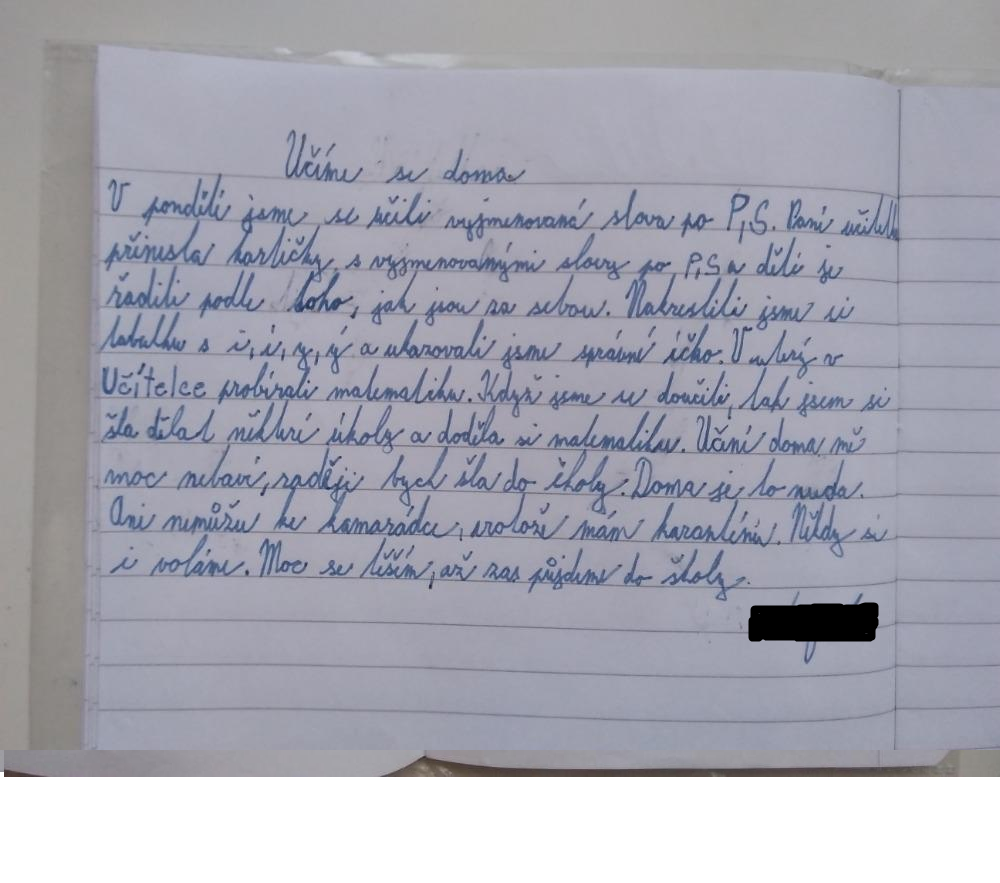 Učíme se doma
V pondělí jsme se učili vyjmenovaná slova po P, S. Paní učitelka
přinesla kartičky s vyjmenovanými slovy po P, S a děti je
řadili podle toho, jak jsou za sebou. Nakreslili jsme si
tabulku s i, í, y, ý a ukazovali jsme správné íčko. V úterý v
Učítelce probírali matematiku. Když jsme se doučili, tak jsem si
šla dělat některi úkoly a doděla si matematiku. Učení doma mě
moc nebaví, raději bych šla do školy. Doma je to nuda.
Ani nemůžu ke kamarádce, protože mám karanténu. Někdy si
i voláme. Moc se těším, až zas půjdeme do školy.